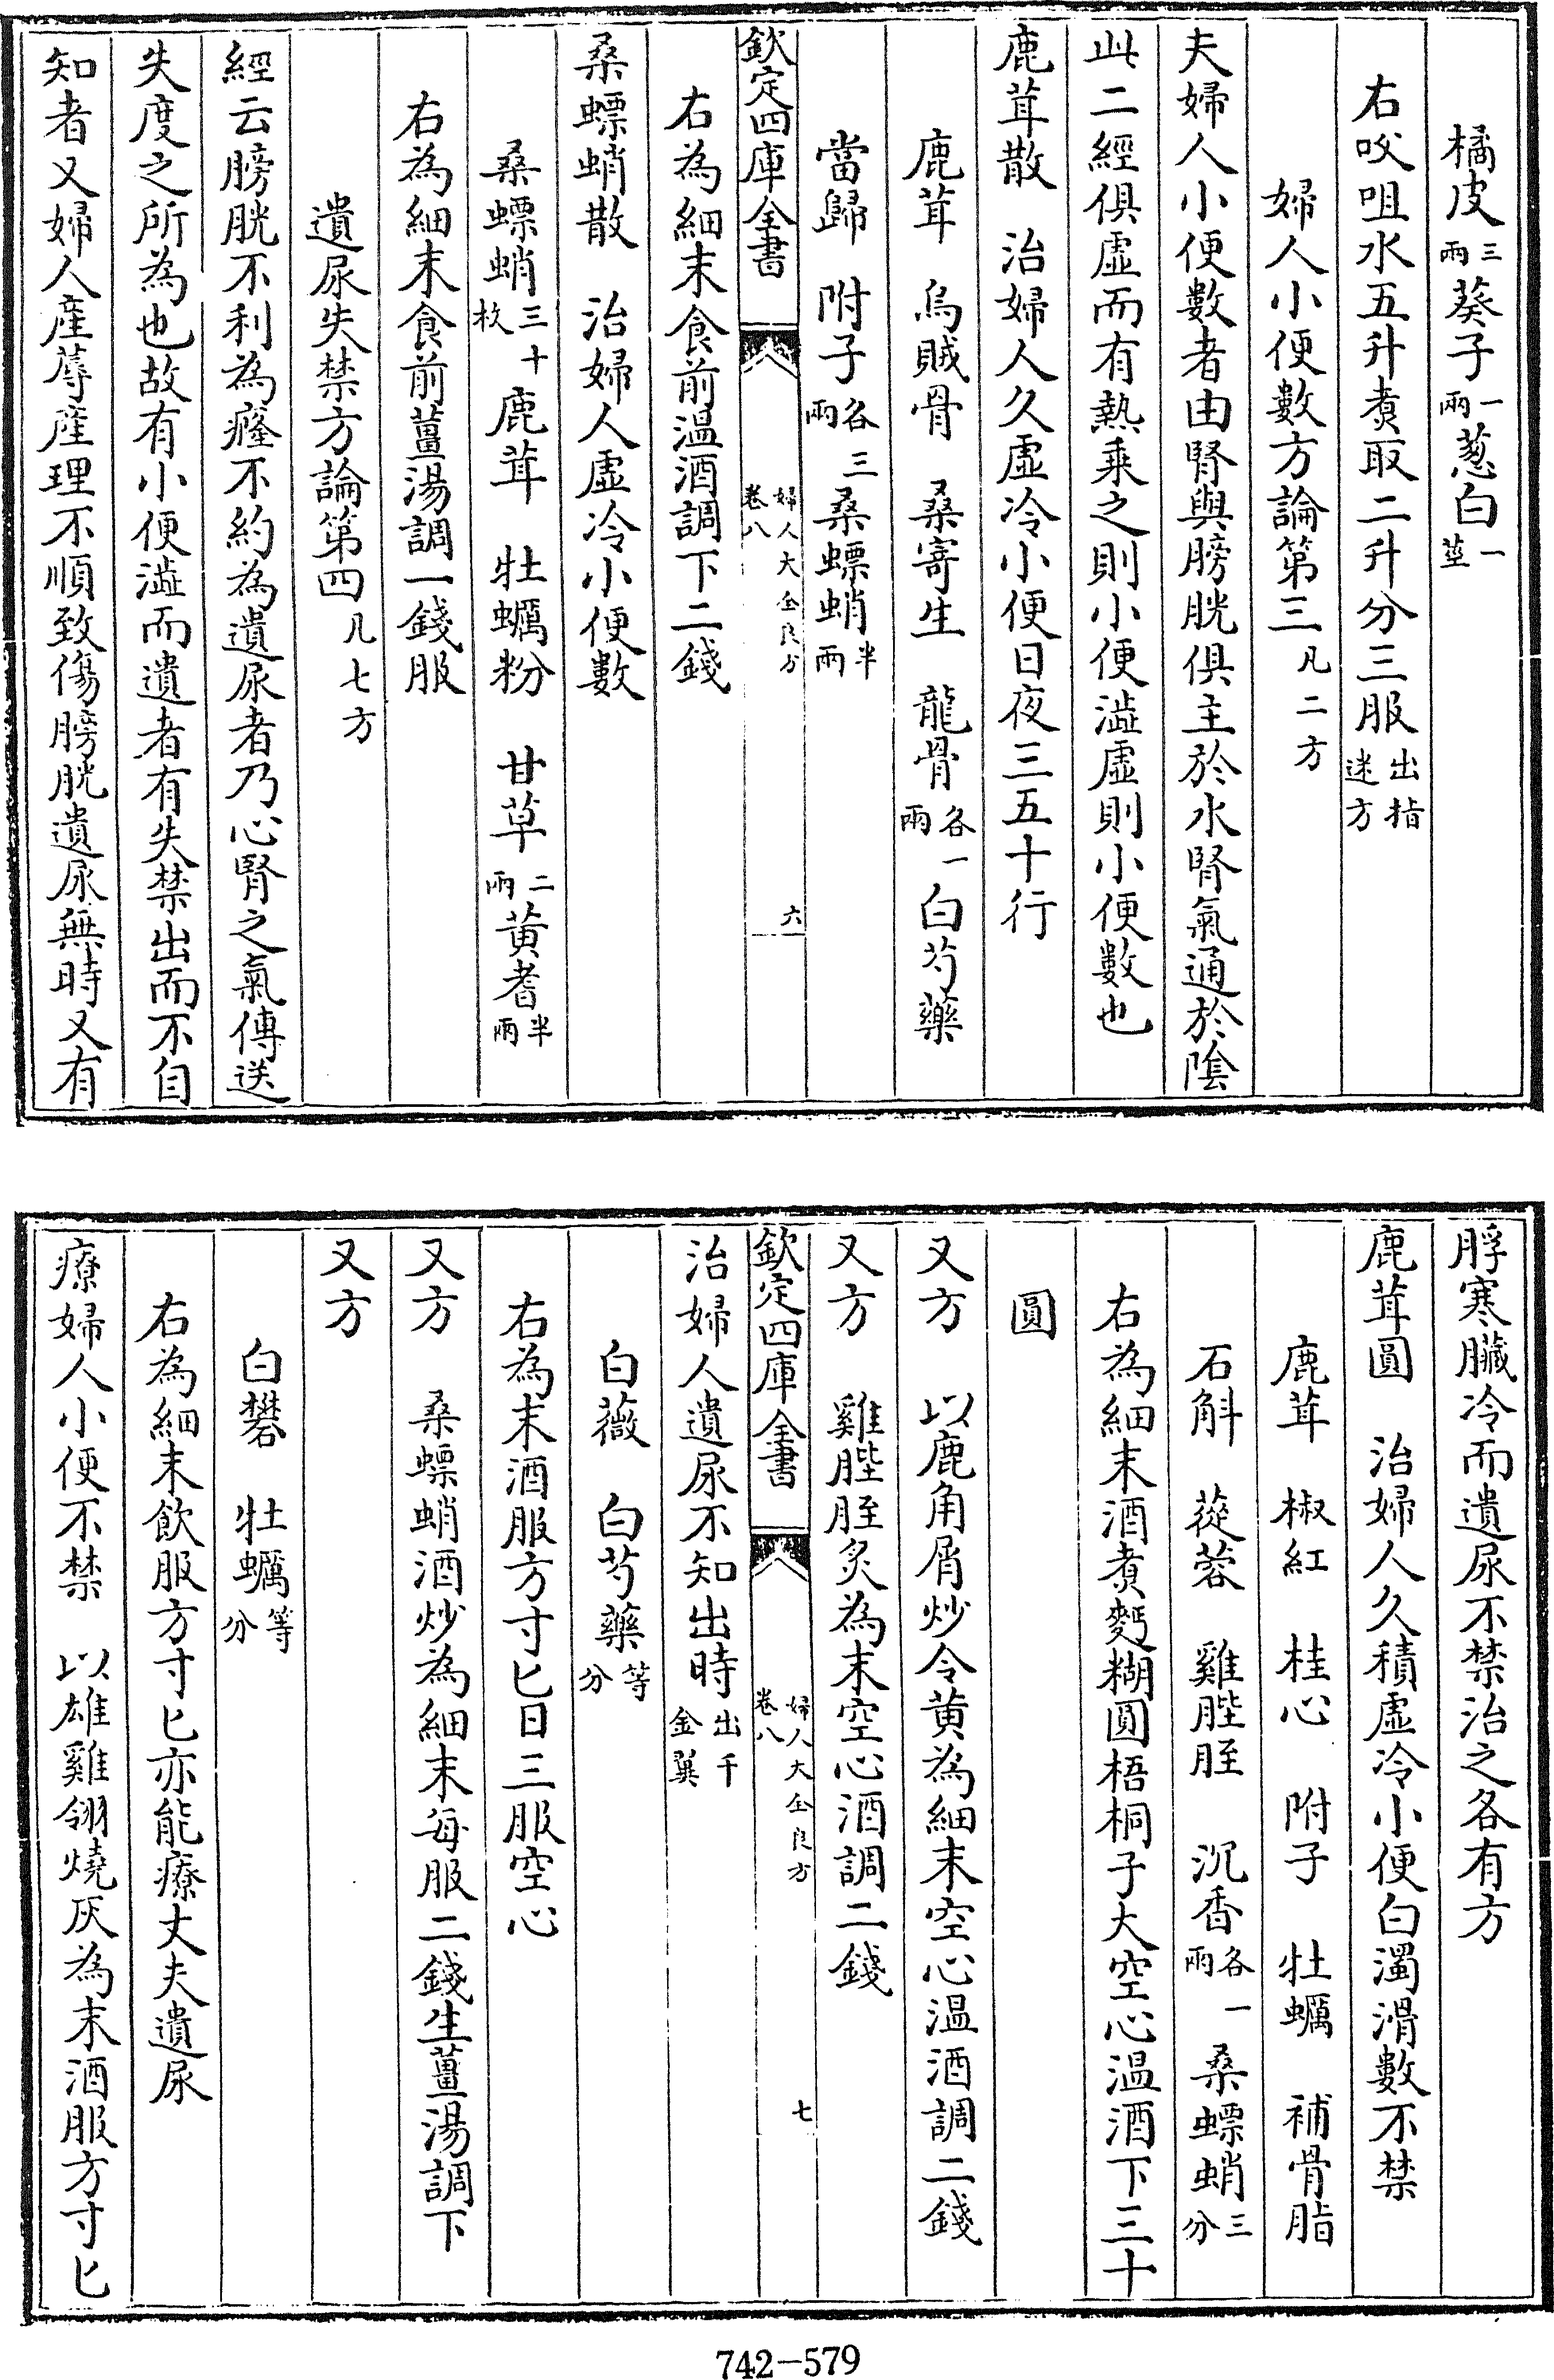 橘皮三兩葵子一兩葱白一莖
右㕮咀水五升煮取二升分三服出指迷方
婦人小便數方論第三凡二方
夫婦人小便數者由腎與膀胱俱主於水腎氣通於陰
此二經俱虛而有熱乘之則小便澁虛則小便數也
鹿茸散　治婦人久虛冷小便日夜三五十行
鹿茸　烏賊骨　桑寄生　龍骨各一兩白芍藥
當歸　附子各三兩桑螵蛸半兩
欽定四庫全書　婦人大全良方卷八　六
右為細末食前温酒調下二錢
桑螵蛸散　治婦人虛冷小便數
桑螵蛸三十枚鹿茸　牡蠣粉　甘草二兩黄耆半兩
右為細末食前薑湯調一錢服
遺尿失禁方論第四凡七方
經云膀胱不利為癃不約為遺尿者乃心腎之氣傳送
失度之所為也故有小便澁而遺者有失禁出而不自
知者又婦人產蓐產理不順致傷膀胱遺尿無時又有
脬寒臟冷而遺尿不禁治之各有方
鹿茸圓　治婦人久積虛冷小便白濁滑數不禁
鹿茸　椒紅　桂心　附子　牡蠣　補骨脂
石斛　蓯蓉　雞膍胵　沉香各一兩桑螵蛸三分
右為細末酒煮麪糊圓梧桐子大空心温酒下三十
圓
又方　以鹿角屑炒令黄為細末空心温酒調二錢
又方　雞膍胵炙為末空心酒調二錢
欽定四庫全書　婦人大全良方卷八　七
治婦人遺尿不知出時出千金翼
白薇　白芍藥等分
右為末酒服方寸匕日三服空心
又方　桑螵蛸酒炒為細末每服二錢生薑湯調下
又方
白礬　牡蠣等分
右為細末飲服方寸匕亦能療丈夫遺尿
療婦人小便不禁　以雄雞翎燒灰為末酒服方寸匕
742-579